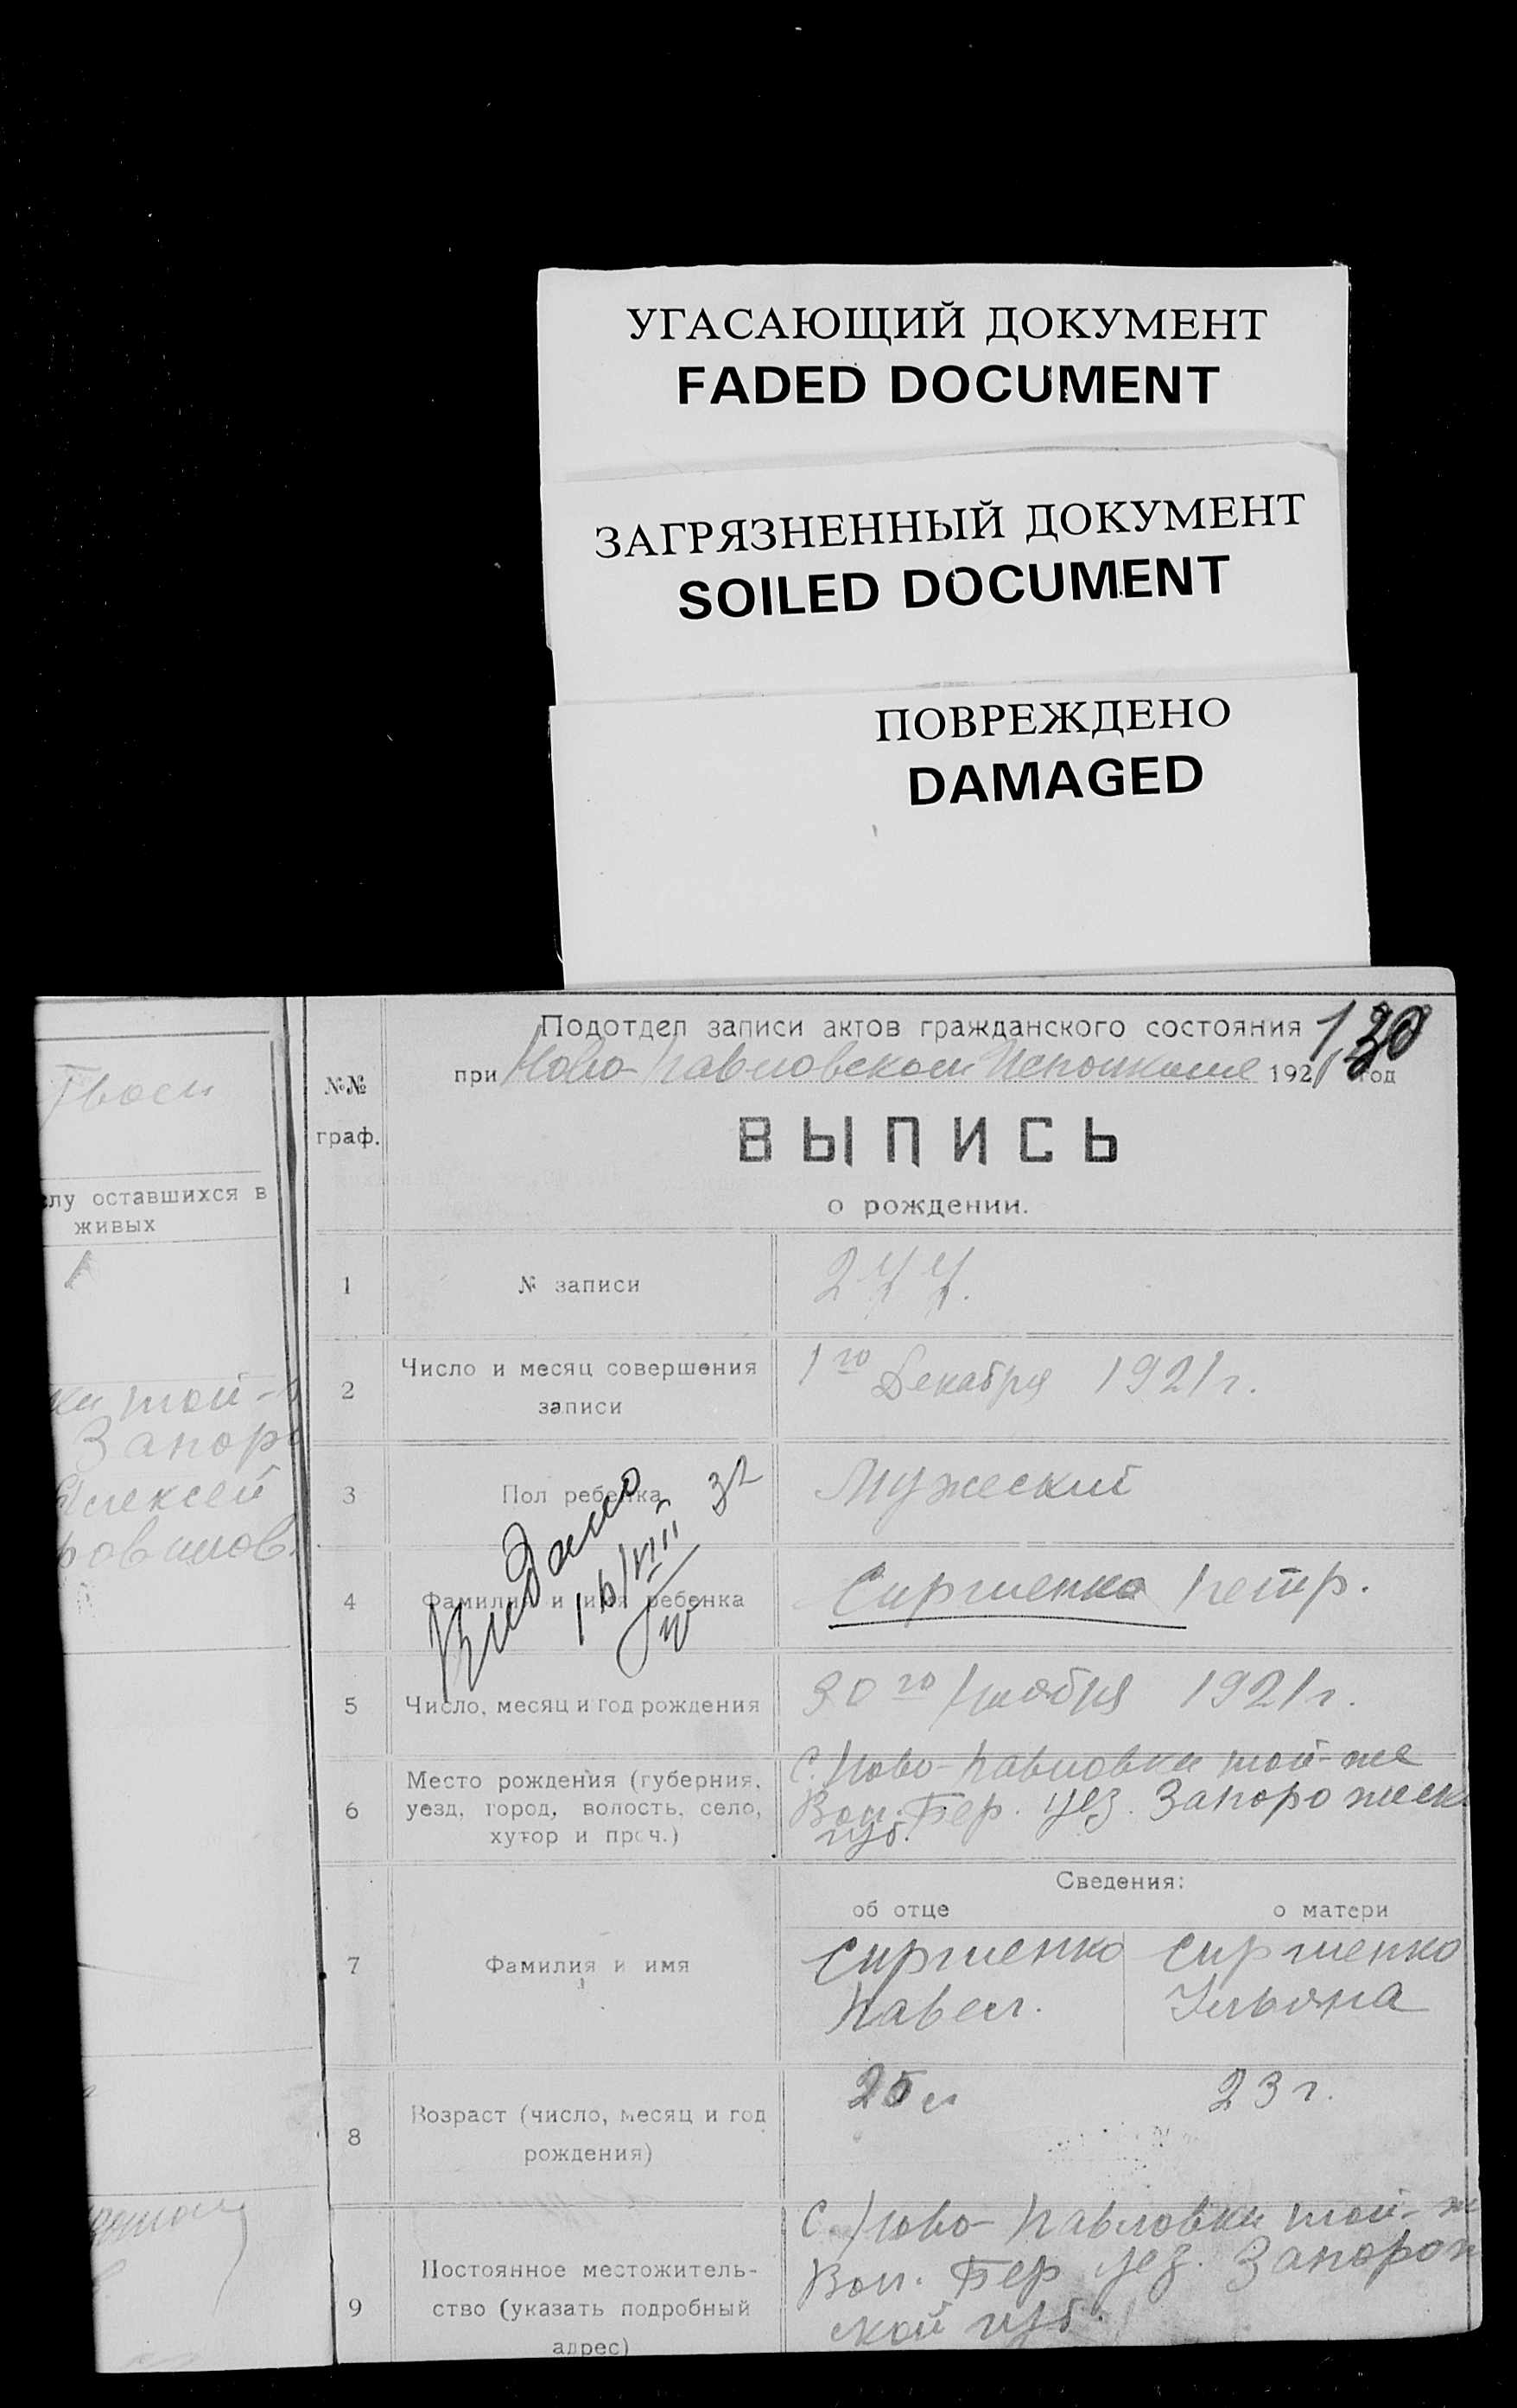 УГАСАЮЩИЙ ДОКУМЕНТ
FADED DOCUMENT
ЗАГРЯЗНЕННЫЙ ДОКУМЕНТ
SOILED DOCUMENT
ПОВРЕЖДЕНО
DAMAGED
лу оставшихся в
живых
ки той-
Запор
Алексей
№№
граф.
Подотдел записи актов гражданского состояния
130
при Ново-Павловском 1921 год
ВЫПИСЬ
о рождении.
1
№ записи
277.
2
Число и месяц совершения
записи
1го Декабря 1921 г.
3
Пол ребенка
Мужеский
Выдано
16/VIII 32
4
Фамилия и имя ребенка
Сиргиенко Петр.
5
Число, месяц и год рождения
30го Ноября 1921 г.
6
Место рождения (губерния,
уезд, город, волость, село,
хутор и проч.)
С. Ново-Павловки той-же
Вол. Бер. уез. Запорожск
губ.
Сведения:
об отце
о матери
7
Фамилия и имя
Сиргиенко
Павел.
Сиргиенко
Ульяна
8
Возраст (число, месяц и год
рождения)
25 л
23 г.
9
Постоянное местожитель-
ство (указать подробный
адрес)
С. Ново-Павловки той-ж
Вол. Бер уез. Запорож
ской губ.